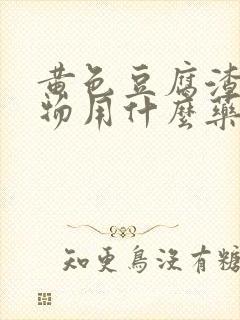 黄色豆腐渣
物用什麼藥
知更鳥沒有糖